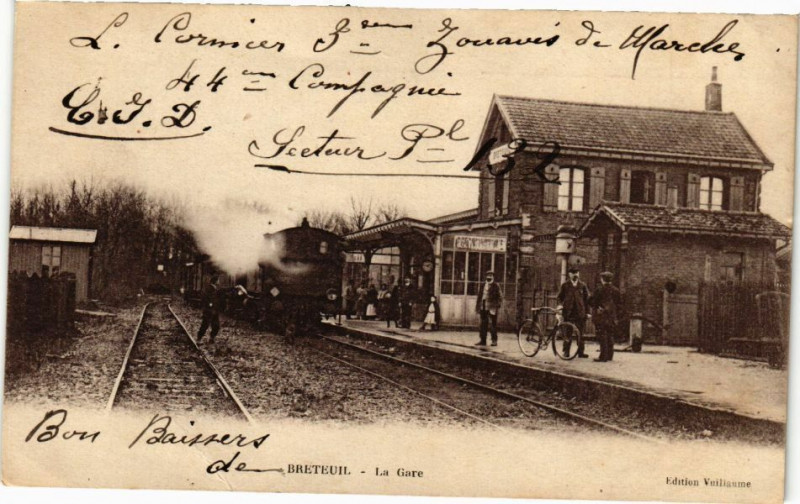 L. Cormier 3em Zouavis de Marche
44em Compagnie
C.I.D.
Secteur Pl 132
Bon Baisers
de BRETEUIL - La Gare
Edition Vuillaume